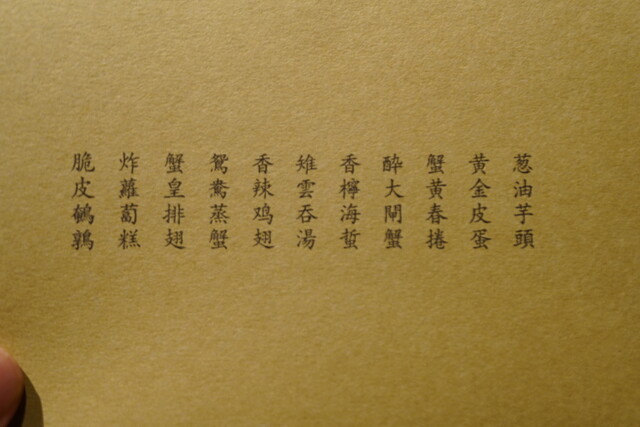 葱油芋頭
黃金皮蛋
蟹黃春捲
醉大閘蟹
香檸海蜇
雉雲吞湯
香辣鸡翅
鴛鴦蒸蟹
蟹皇排翅
炸蘿蔔糕
脆皮鵪鶉